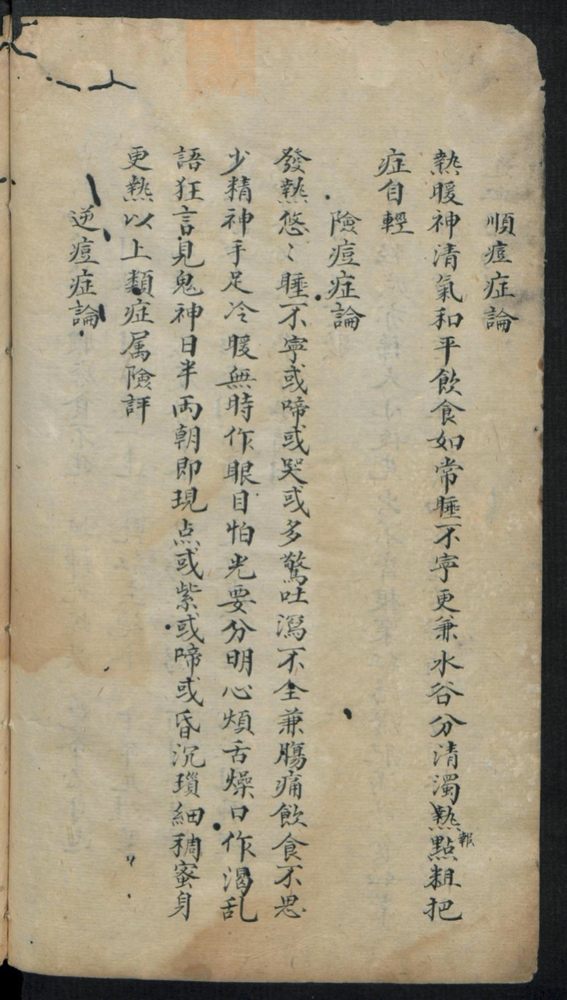 順痘症論
熱暖神清氣和平飲食如常睡不寧更兼水谷分清濁熱報點粗把
症自輕
險痘症論
發熱悠〻睡不寧或啼或哭或多驚吐瀉不全兼腸痛飲食不思
少精神手足冷暖無時作眼目怕光要分明心煩舌燥口作渴乱
語狂言見鬼神日半兩朝即現点或紫或啼或昏沉瑣細稠蜜身
更熱以上類症属險評
逆痘症論